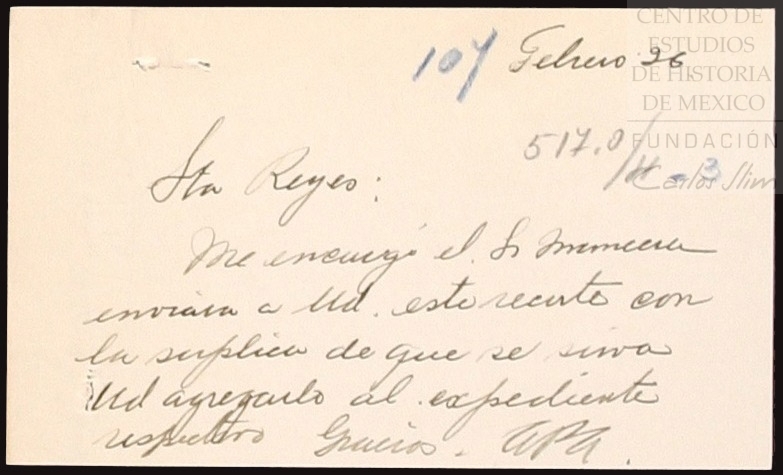 CENTRO DE
ESTUDIOS
DE HISTORIA
DE MEXICO
FUNDACIÓN
Carlos Slim
107 Febrero 26
517.0/
- 3
Sta Reyes:
Me encargó el Sr Mancera
enviara a Ud. este recorte con
la suplica de que se sirva
Ud agregarlo al expediente
respectivo Gracias.